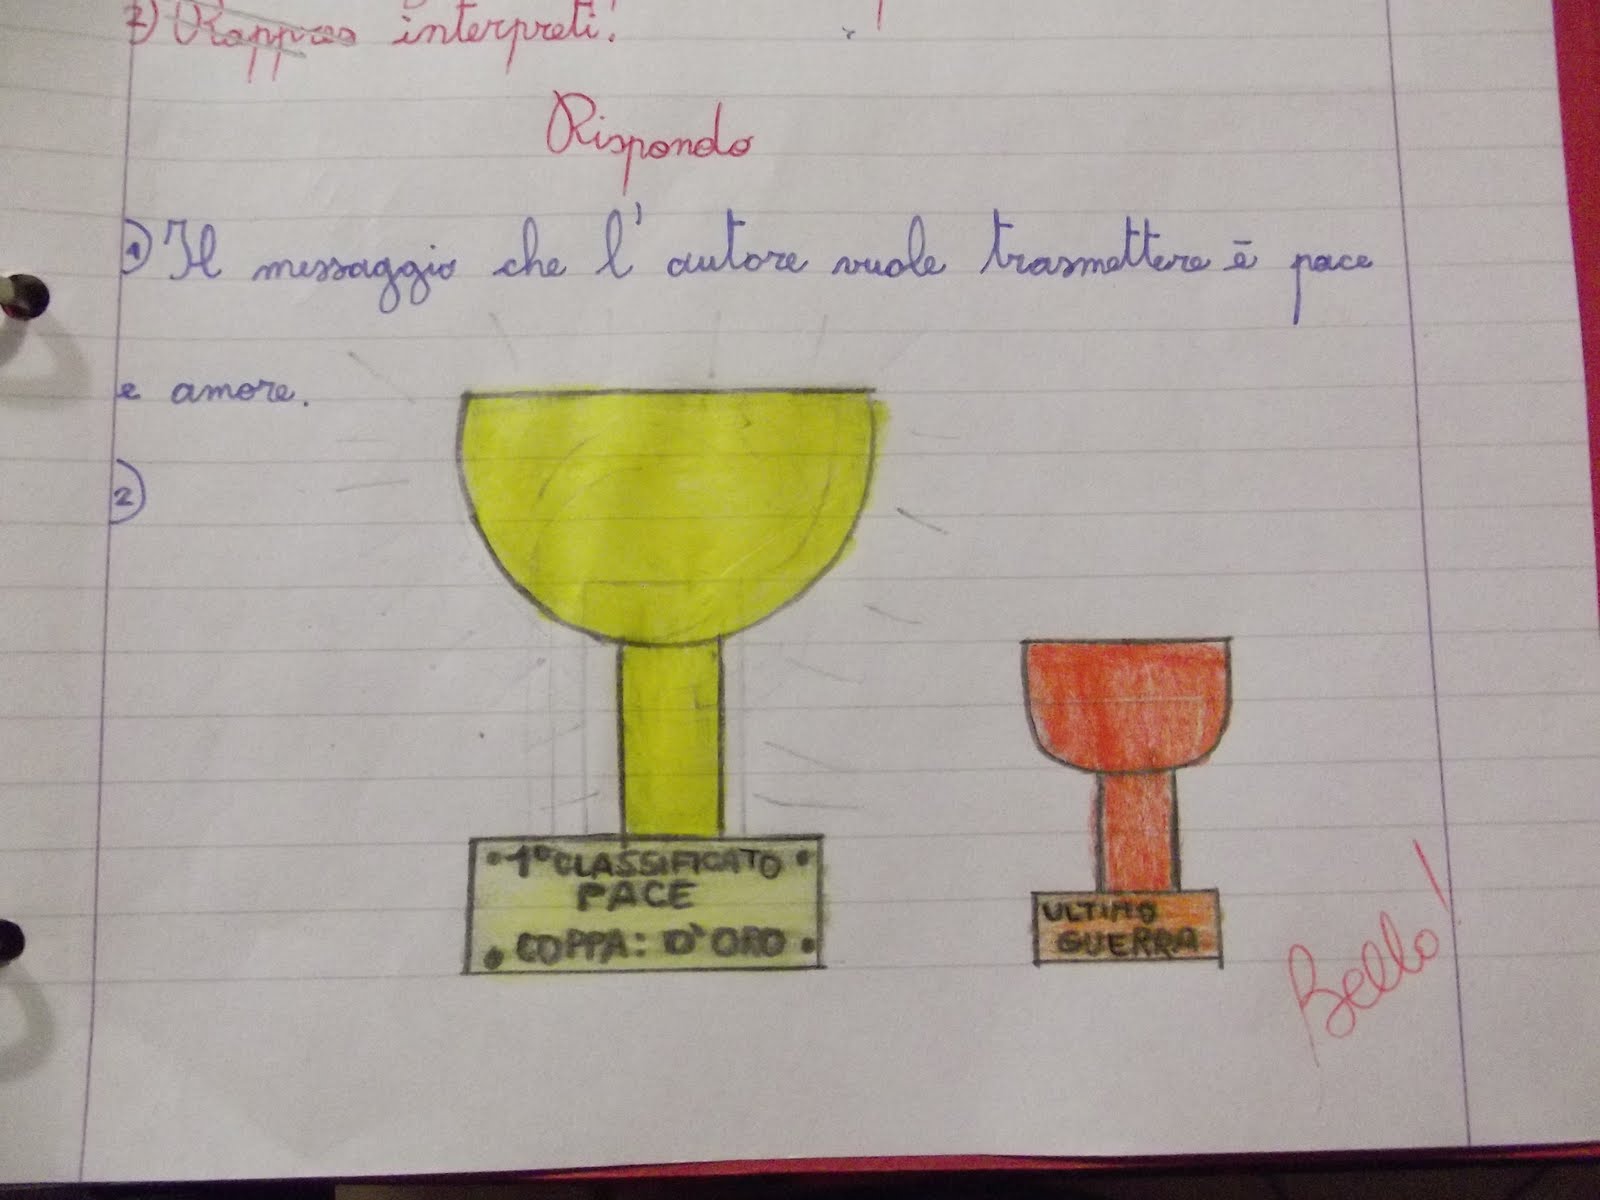 2) Rappres interpreti!
Rispondo
1) Il messaggio che l'autore vuole trasmettere è pace
e amore.
2)
• 1° CLASSIFICATO •
PACE
• COPPA: D'ORO •
ULTIMO
GUERRA
Bello!